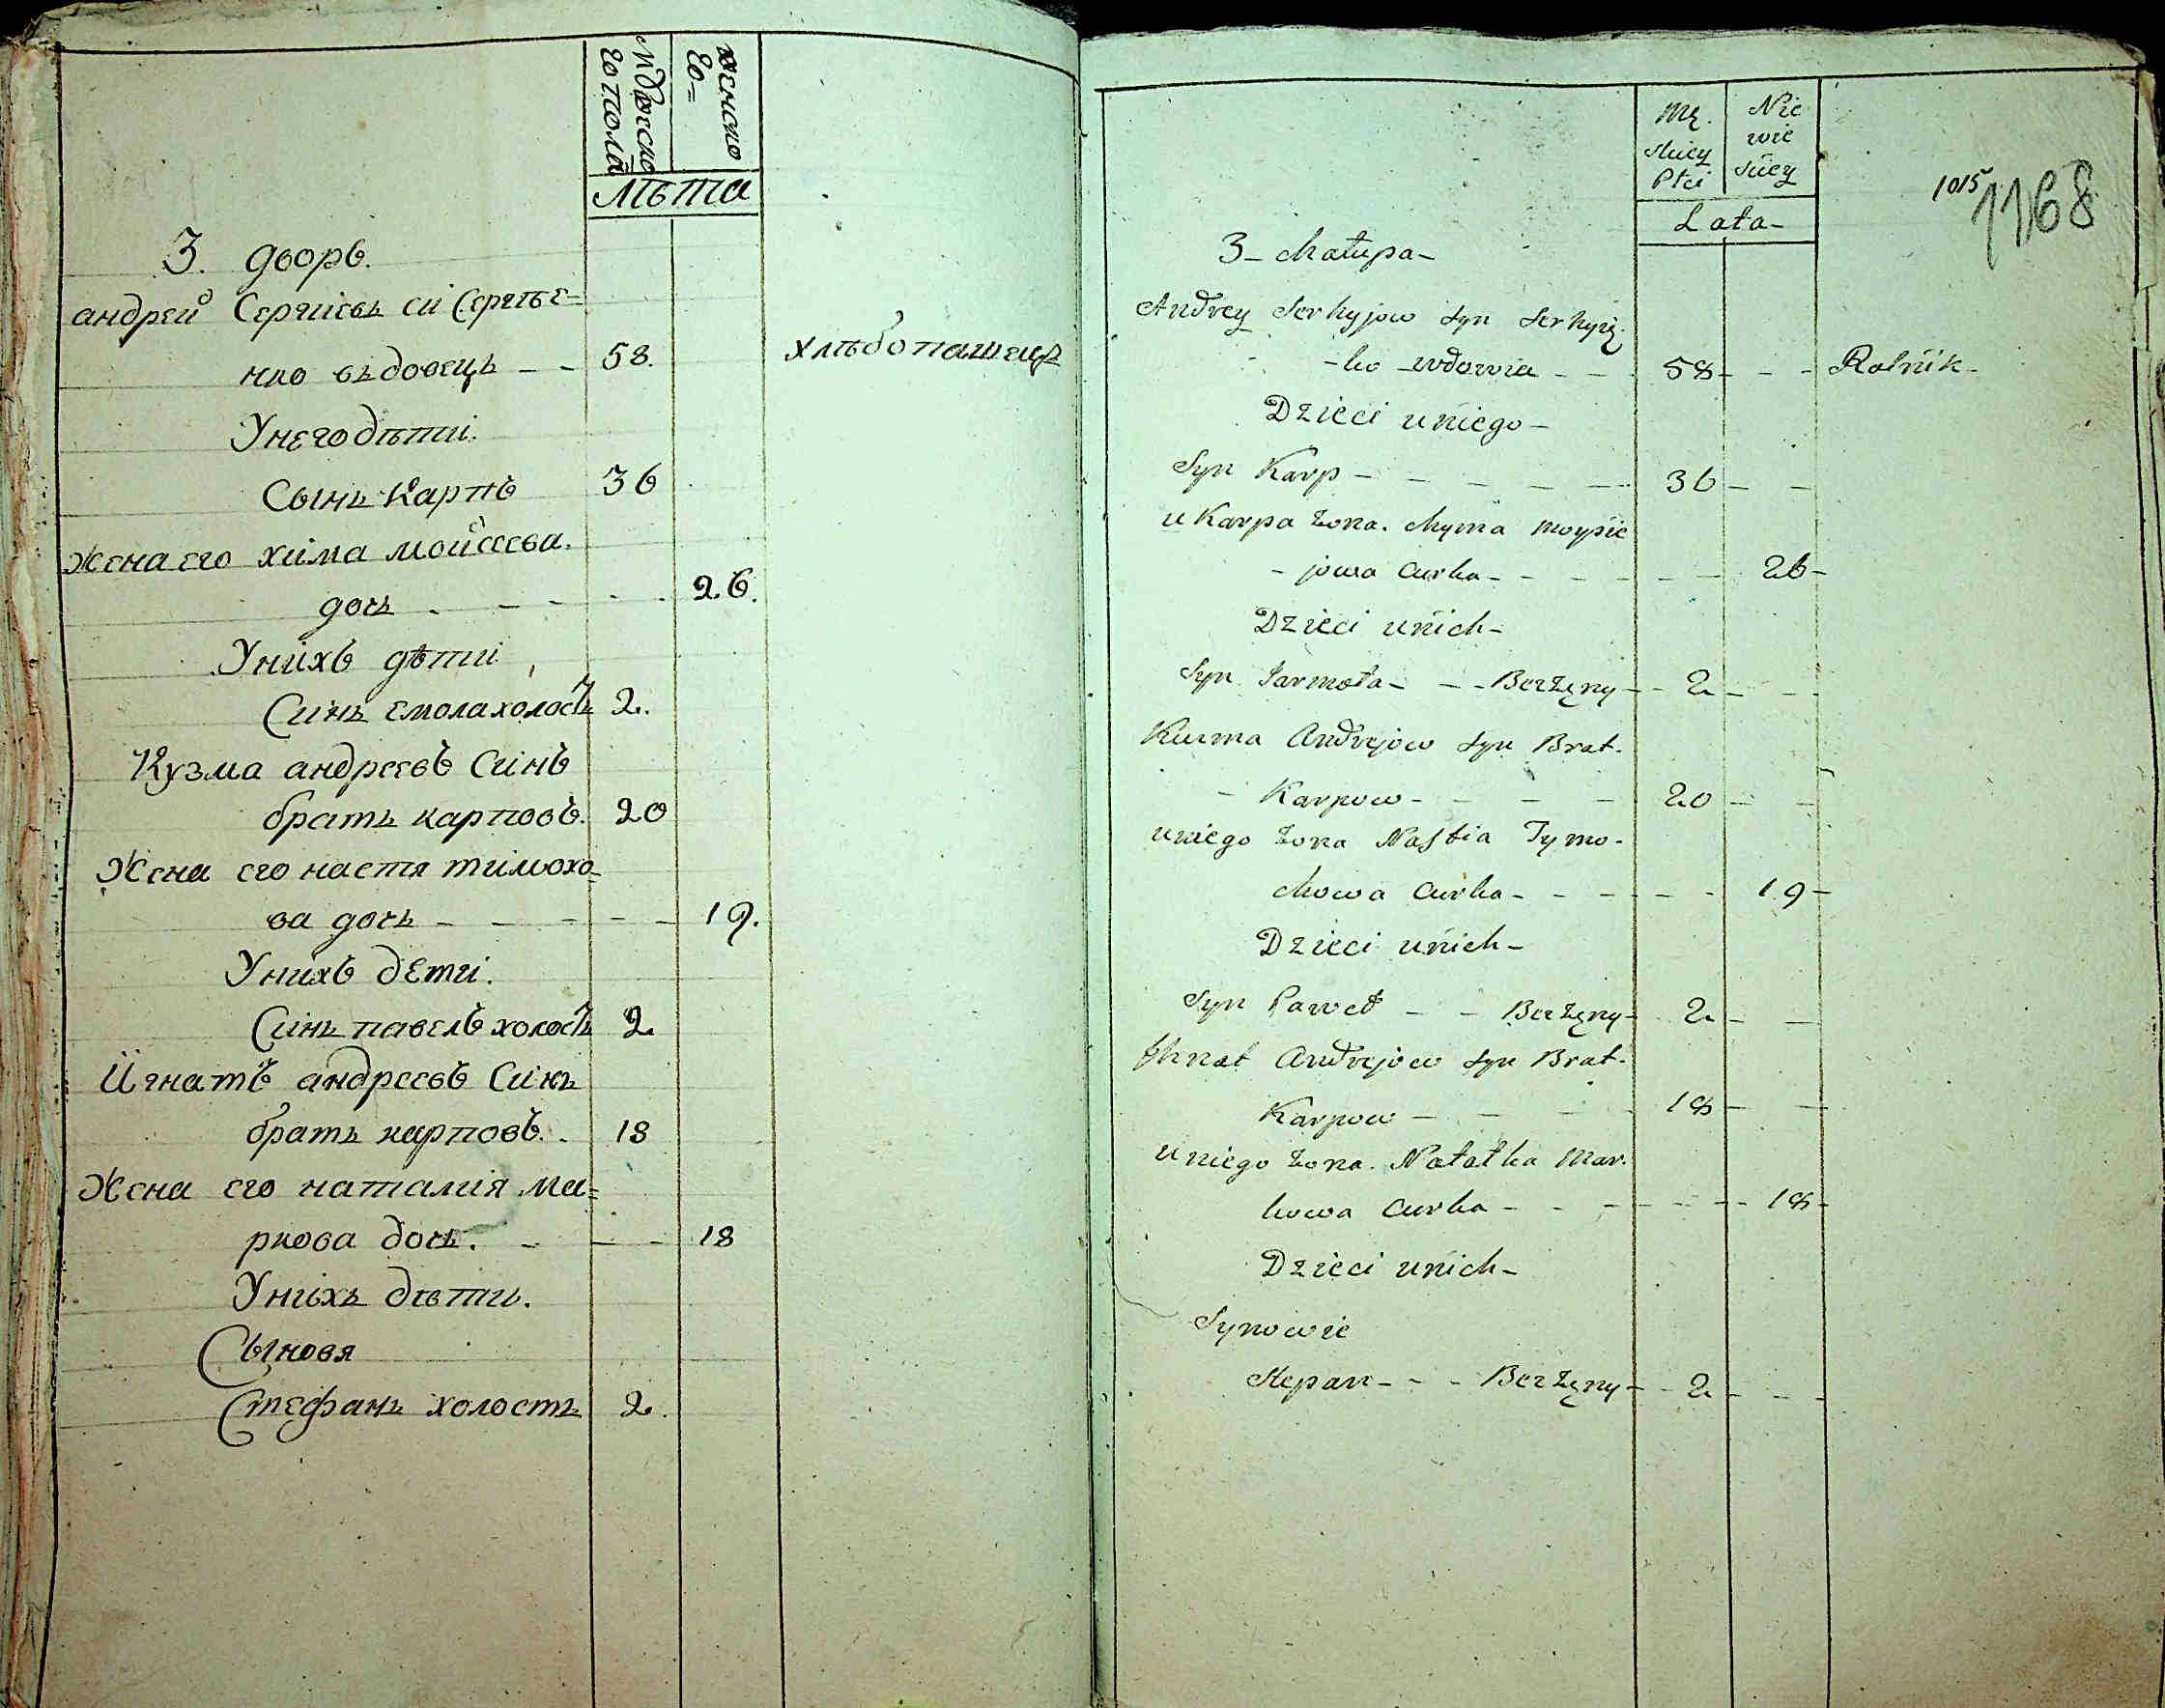 мужеско
го пола
женско
го=
лѣта
3. дворъ.
андрей Сергіевъ сй Сергѣе=
нко вьдовець - - 58. хлѣбопашець
Унего дѣти.
Сынъ Карпъ 36
Жена его хима мойсеева.
дочь - - - - 26.
Унихъ дѣти
Синъ ємола холостъ 2.
Кузма андреевъ Синъ
братъ карповъ. 20
Жена его настя тимохо-
ва дочь - - - - 19.
Унихъ дети.
Синъ павелъ холостъ 2
Йгнатъ андреевъ Синъ
братъ карповъ. 18
Жена его наталия ма=
ркова дочь. - - - 18
Унихъ дѣти.
Сыновя
Стефанъ холостъ 2.
Mę.
skiey
Płci
Nie
wie
sciey
Lata-
1015
1168
3- Chałupa-
Andrey Serhyjow syn Serhyię.
-ko wdowia - - 58 - - - Rolnik-
Dzieci u niego-
Syn Karp - - - - - - 36 - -
u Karpa żona. Chyma Moysie
- jowa curka - - - - - - 26-
Dzieci u nich-
Syn Jarmoła - - - Beżęny - - 2 - - -
Kuzma Andrejow syn Brat.
- Karpow - - - - 20 - -
u niego żona Nastia Tymo-
chowa curka - - - - - - 19-
Dzieci u nich-
Syn Paweł - - Beżęny - 2 - -
Ihnat Andrejow syn Brat.
Karpow - - - - 18 - -
u niego żona. Natałka Mar.
kowa curka - - - - - - - 18-
Dzieci u nich-
Synowie
Stepan - - - Beżęny - - 2 - - -